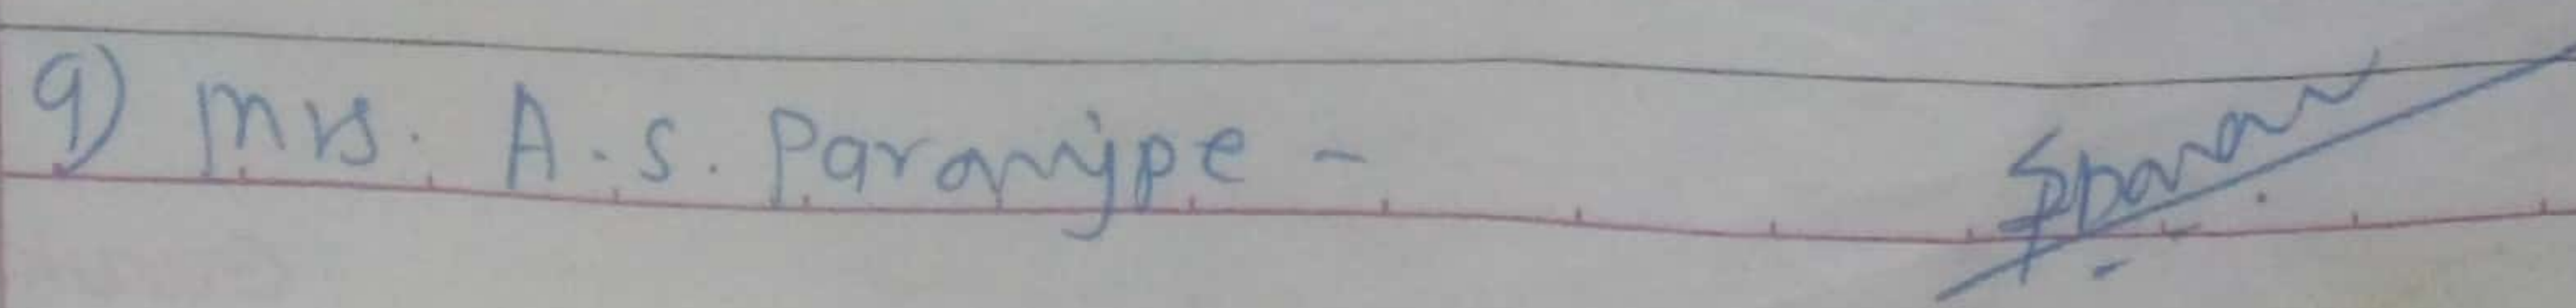 9) Mrs. A. S. Paranjpe -